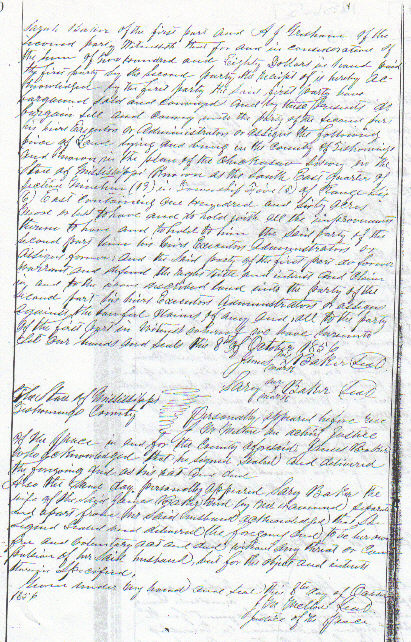 Sarah Baker of the first part and A J Gresham of the
second part Witnesseth that for and in consideration of
the sum of two hundred and Eighty Dollars in hand paid
the first party by the second party the receipt of is hereby ac-
knowledged by the first party the said first party have
bargained Sold and conveyed and by these presents do
bargain sell and convey unto the party of the second part
his heirs Executors or Administrators or assigns the following
piece of Land lying and being in the County of Tishomingo
and Known in the plan of the Chickasaw in the
State of Mississippi Known as the South East Quarter of
Section Number (13) in Township of Range
East containing One hundred and sixty acres
to have and to hold with all the improvements
thereon to have and to hold to him the said party of the
second part his heirs Executors Administrators or
assigns forever and the said party of the first part do forever
warrant and defend the right title and interest and claim
in and to the above described land unto the party of the
second part his heirs Executors Administrators or assigns
against the lawful claims of any and all to the party
of the first part in witness whereof we have hereunto
Set our hands and seals the 8th of October 1856
James his mark Baker Seal
Sary her mark Baker Seal
The State of Mississippi
Tishomingo County
Personally appeared before me
an acting Justice
of the peace in and for the County aforesaid James Baker
who acknowledged that he signed Sealed and delivered
the foregoing deed as his act and deed
also the same day personally appeared Sary Baker the
wife of the said James Baker and by me examined separate
and apart from her said husband acknowledged that She
signed Sealed and delivered the foregoing deed as her own
free and voluntary act and deed without any threat or Com-
pulsion of her said husband, but for the object and intents
therein Specified.
Given under my hand and seal this 8th day of October
1856
Seal
Justice of the peace